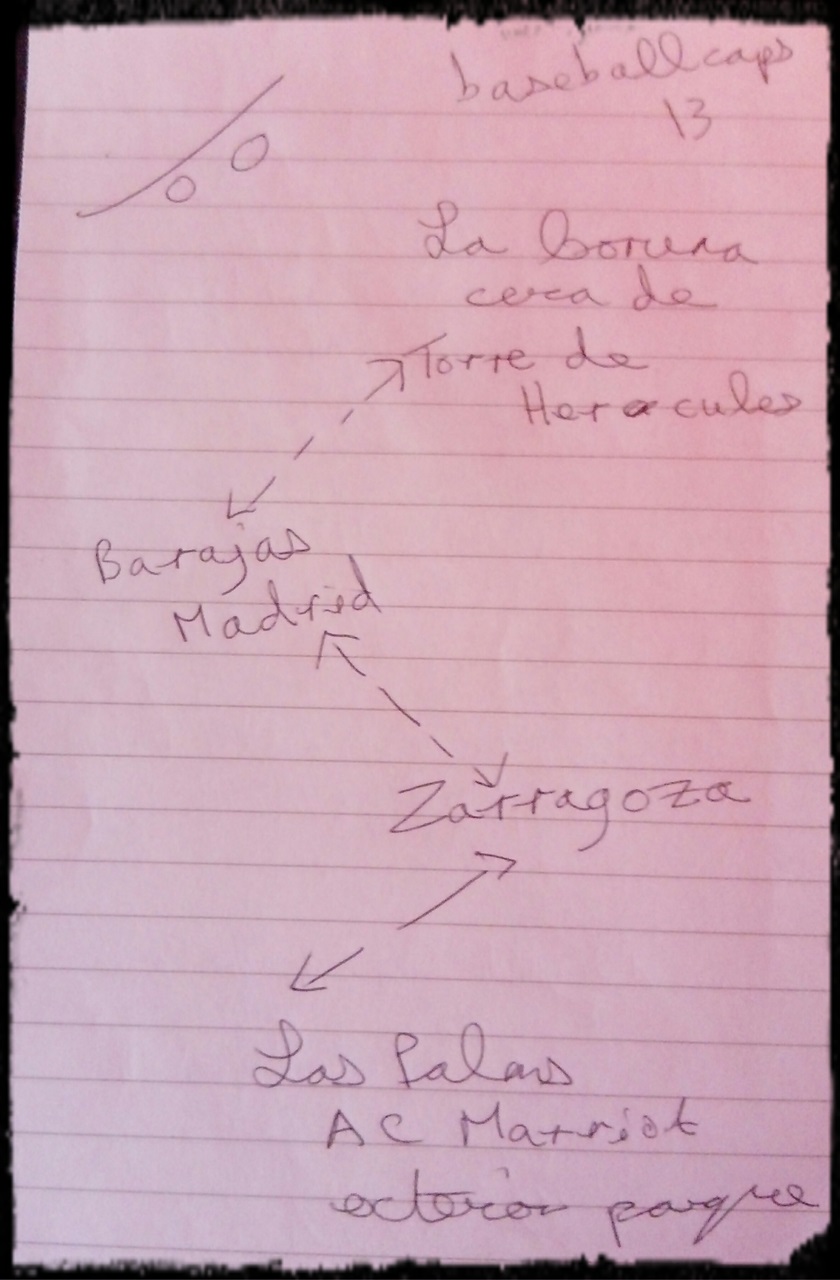 baseball caps
13
La Coruna
cerca de
Torre de
Heracules
Barajas
Madrid
Zarragoza
Las Palms
AC Marriot
exterior parque